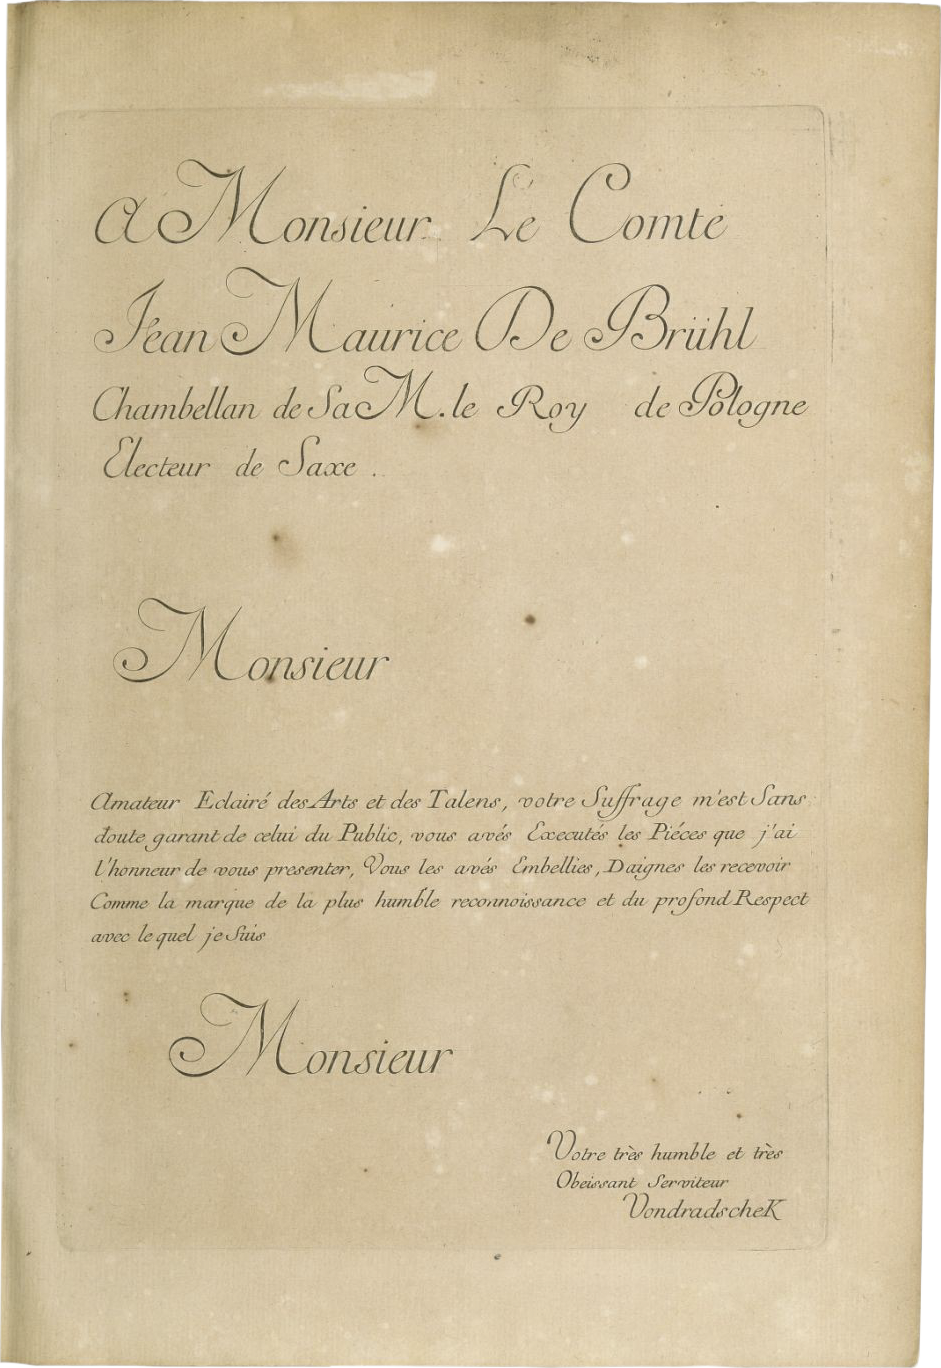 A Monsieur Le Comte
Jean Maurice De Brühl
Chambellan de Sa M. le Roy de Pologne
Electeur de Saxe .
Monsieur
Amateur Eclairé des Arts et des Talens, votre Suffrage m'est Sans
doute garant de celui du Public, vous avés Executés les Piéces que j'ai
l'honneur de vous presenter, Vous les avés Embellies, Daignes les recevoir
Comme la marque de la plus humble reconnoissance et du profond Respect
avec le quel je Suis
Monsieur
Votre très humble et très
Obeissant Serviteur
VondradscheK